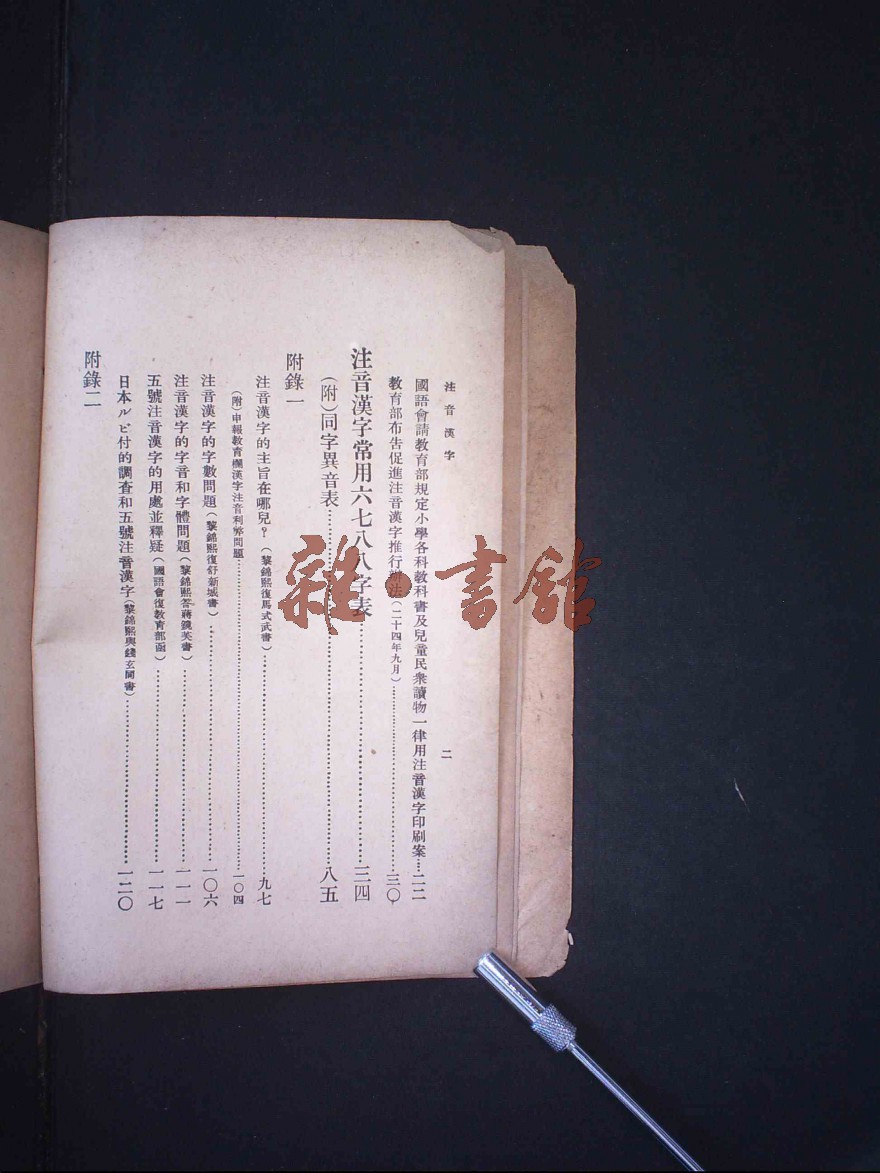 注音漢字
二
國語會請教育部規定小學各科教科書及兒童民衆讀物一律用注音漢字印刷案……二二
教育部布告促進注音漢字推行辦法（二十四年九月）……三〇
注音漢字常用六七八八字表……三四
（附）同字異音表……八五
附錄一
注音漢字的主旨在哪兒？（黎錦熙復馬式武書）……九七
（附）申報教育欄漢字注音利弊問題……一〇四
注音漢字的字數問題（黎錦熙復舒新城書）……一〇六
注音漢字的字音和字體問題（黎錦熙答蔣鏡芙書）……一一一
五號注音漢字的用處並釋疑（國語會復教育部函）……一一七
日本ルビ付的調查和五號注音漢字（黎錦熙與錢玄同書）……一二〇
附錄二
雜·書館